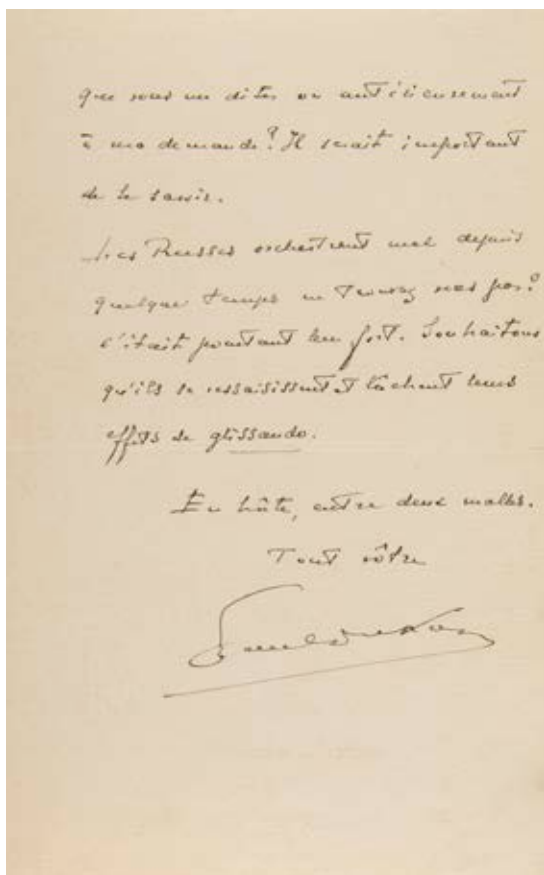 que vous me dites ou antérieurement
à ma demande? Il serait important
de le savoir.
Les Russes orchestrent mal depuis
quelque temps ne trouvez vous pas?
C'était pourtant leur fort. Souhaitons
qu'ils se ressaisissent et lâchent leurs
effets de glissando.
En hâte, entre deux malles.
Tout vôtre
Paul Dukas